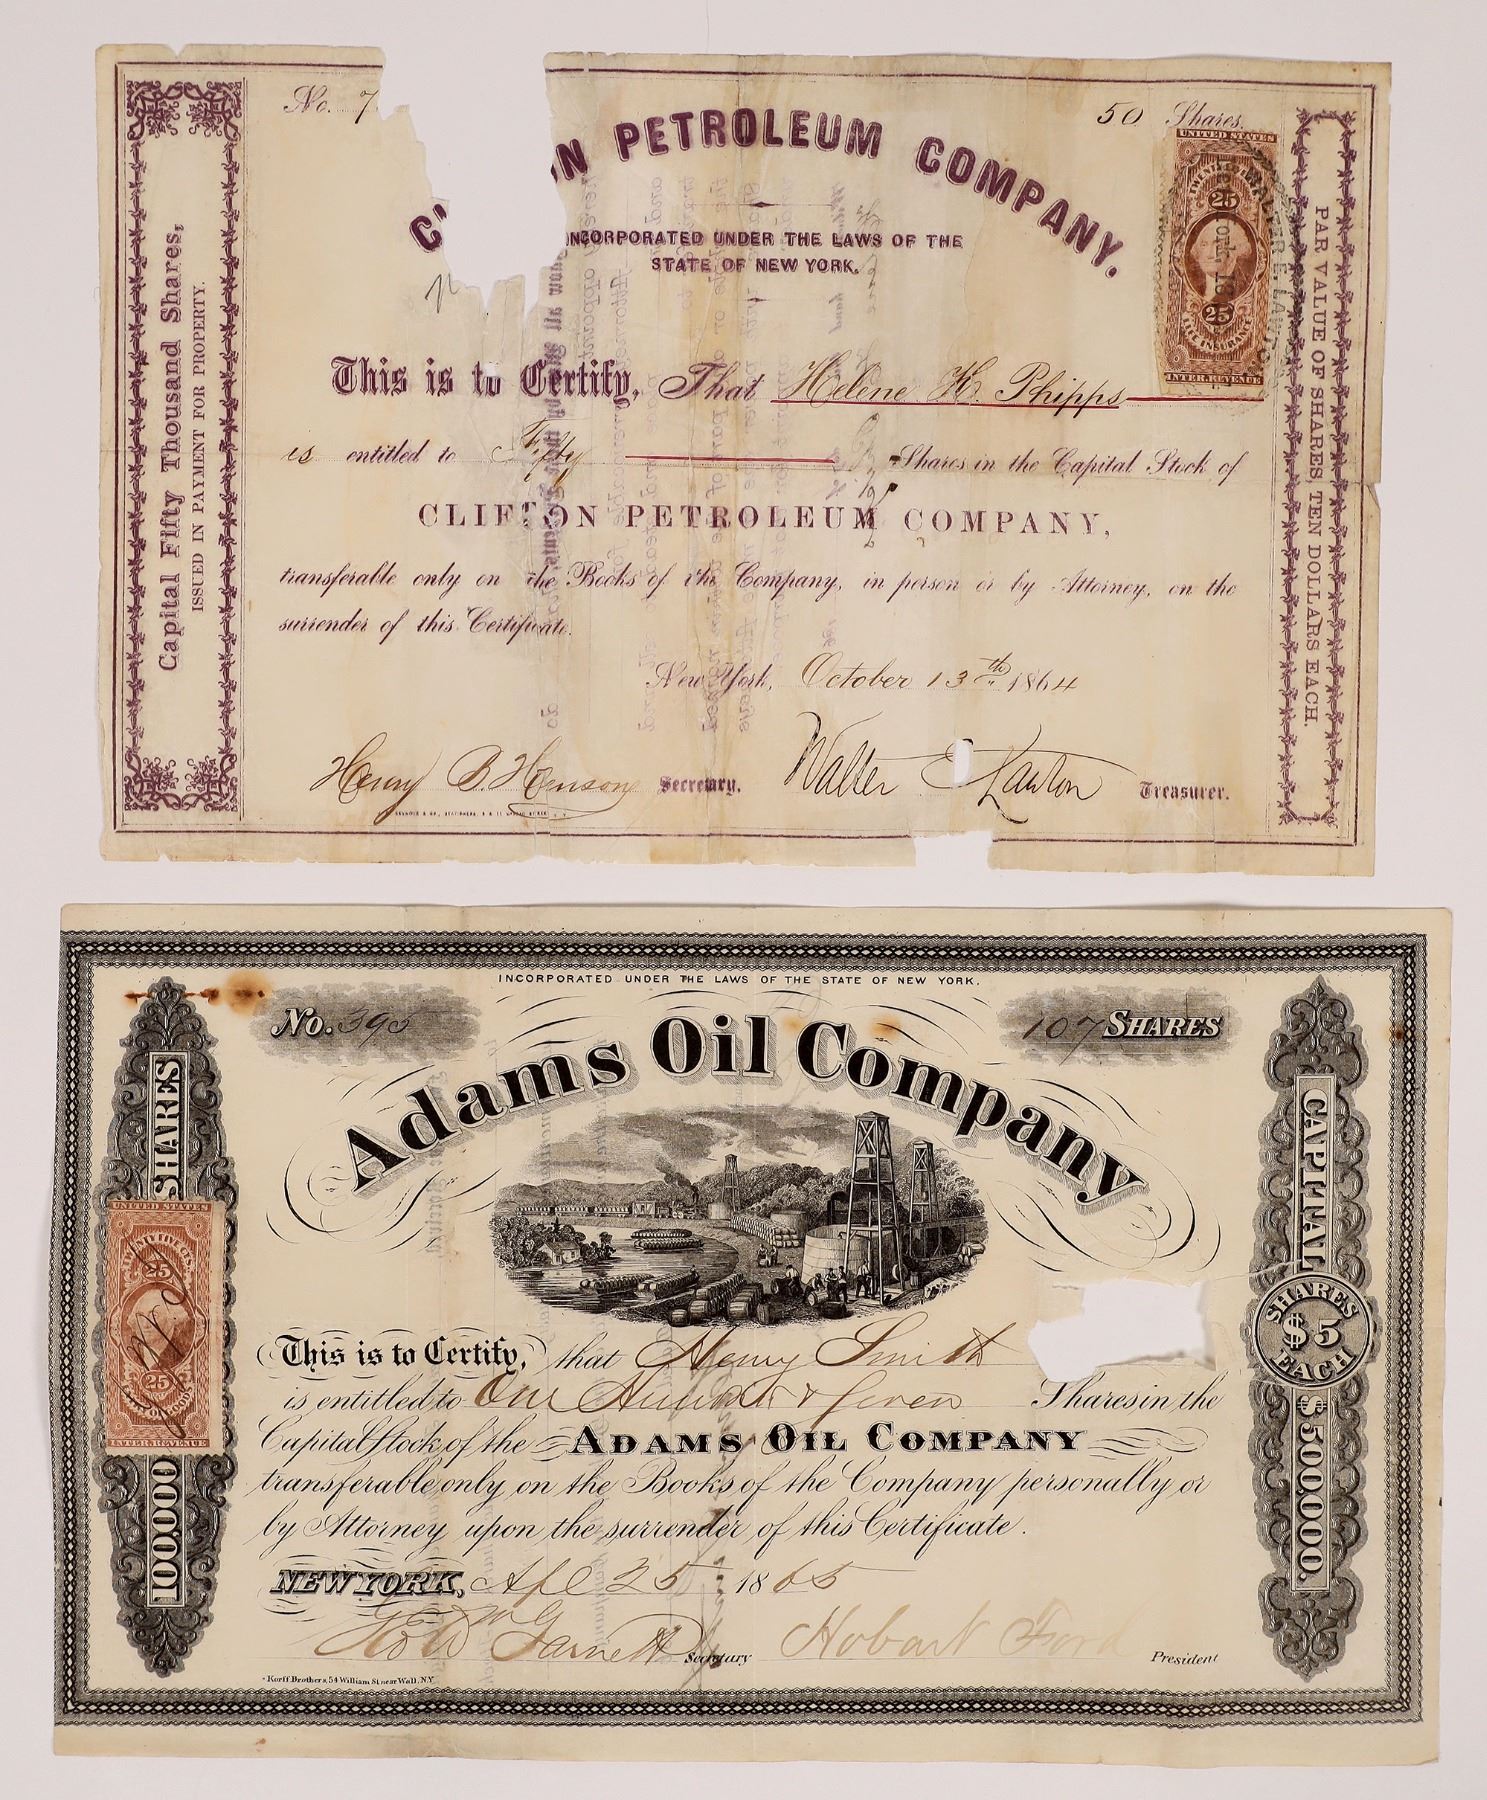 No. 7
50 Shares
PETROLEUM COMPANY.
INCORPORATED UNDER THE LAWS OF THE
STATE OF NEW YORK.
UNITED STATES
25
25
LIFE INSURANCE
INTER. REVENUE
Capital Fifty Thousand Shares,
ISSUED IN PAYMENT FOR PROPERTY.
PAR VALUE OF SHARES, TEN DOLLARS EACH.
This is to Certify, That Helene K. Phipps
is entitled to Fifty Shares in the Capital Stock of
CLIFTON PETROLEUM COMPANY,
transferable only on the Books of the Company, in person or by Attorney, on the
surrender of this Certificate.
New York, October 13th 1864
Henry B. Secretary. Walter E Lawton Treasurer.
INCORPORATED UNDER THE LAWS OF THE STATE OF NEW YORK.
No. 395
107 SHARES
Adams Oil Company
100,000 SHARES
UNITED STATES
25
25
INTER. REVENUE
CAPITAL $500,000.
SHARES
$5
EACH
This is to Certify, that Henry Smith
is entitled to One Hundred & Seven Shares in the
Capital Stock of the ADAMS OIL COMPANY
transferable only on the Books of the Company personally or
by Attorney upon the surrender of this Certificate.
NEW YORK, Apl 25 1865
Garnett Secretary Hobart Ford President
Korff Brothers, 54 William St near Wall, N.Y.